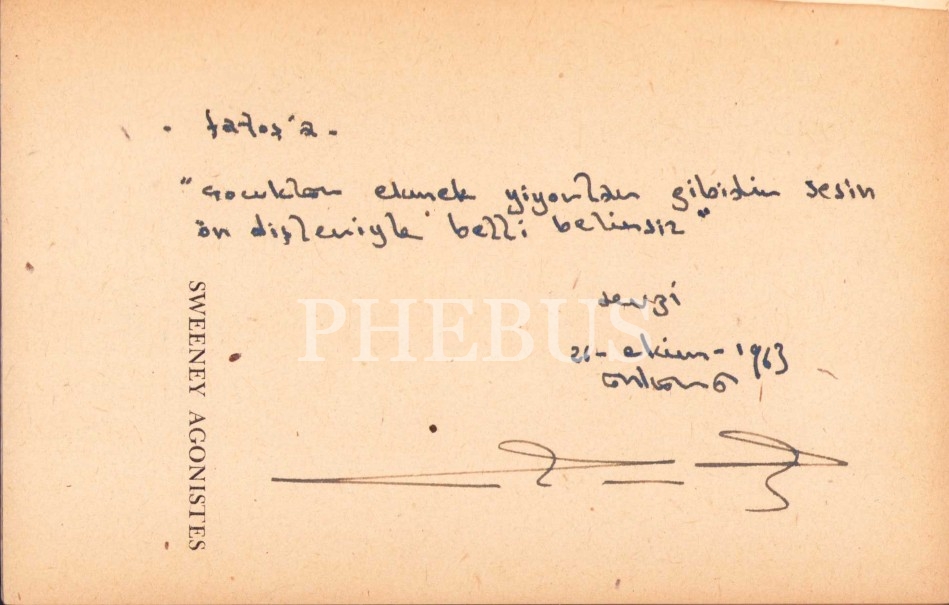 . fatoş'a.
"çocuklar ekmek yiyorlar gibidir sesin
ön dişleriyle belli belirsiz"
sevgi
26-ekim-1963
ankara
SWEENEY AGONISTES
PHEBUS